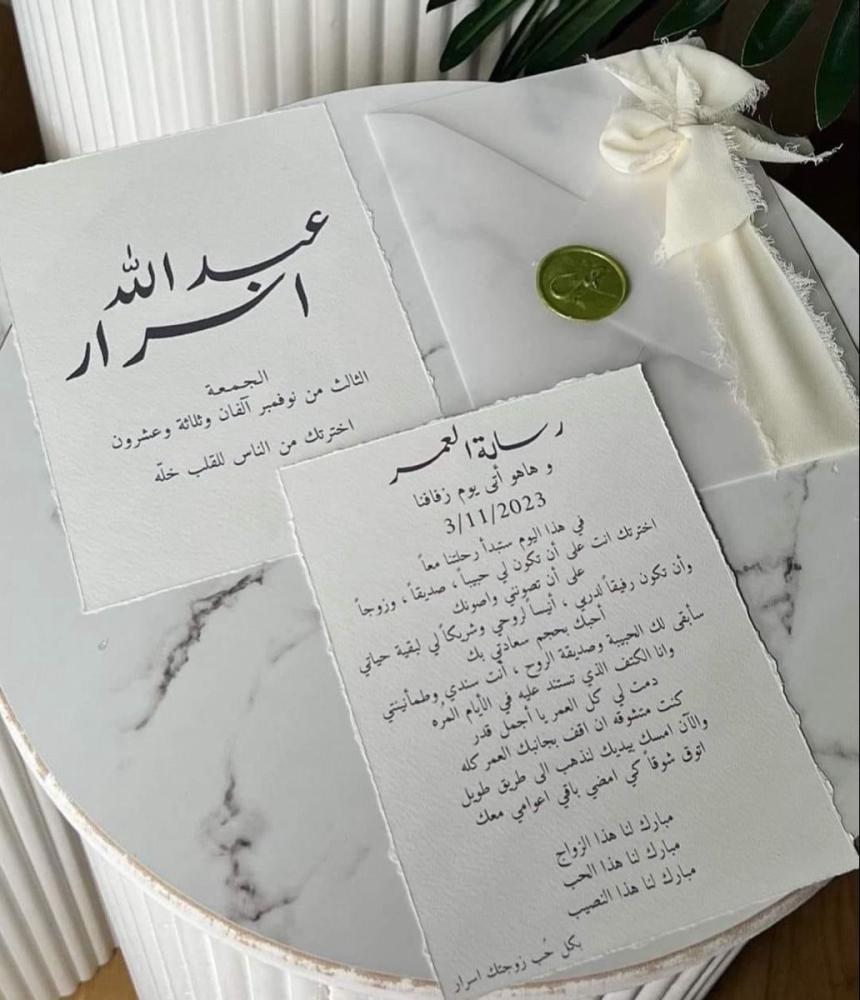 عبد الله
اسرار
الجمعة
الثالث من نوفمبر آلفان وثلاثة وعشرون
اخترتك من الناس للقلب خلّه
رسالة العمر
و هاهو أتى يوم زفافنا
3/11/2023
في هذا اليوم ستبدأ رحلتنا معاً
اخترتك انت على أن تكون لي حبيباً ، صديقاً ، وزوجاً
على أن تصونني واصونك
وأن تكون رفيقاً لدربي ، أنيساً لروحي وشريكاً لي لبقية حياتي
أحبك بحجم سعادتي بك
سأبقى لك الحبيبة وصديقة الروح ، أنت سندي وطمأنينتي
وانا الكتف الذي تستند عليه في الأيام المُره
دمت لي كل العمر يا أجمل قدر
كنت متشوقه ان اقف بجانبك العمر كله
والآن امسك بيديك لنذهب الى طريق طويل
اتوق شوقاً كي امضي باقي اعوامي معك
مبارك لنا هذا الزواج
مبارك لنا هذا الحب
مبارك لنا هذا النصيب
بكل حُب زوجتك اسرار